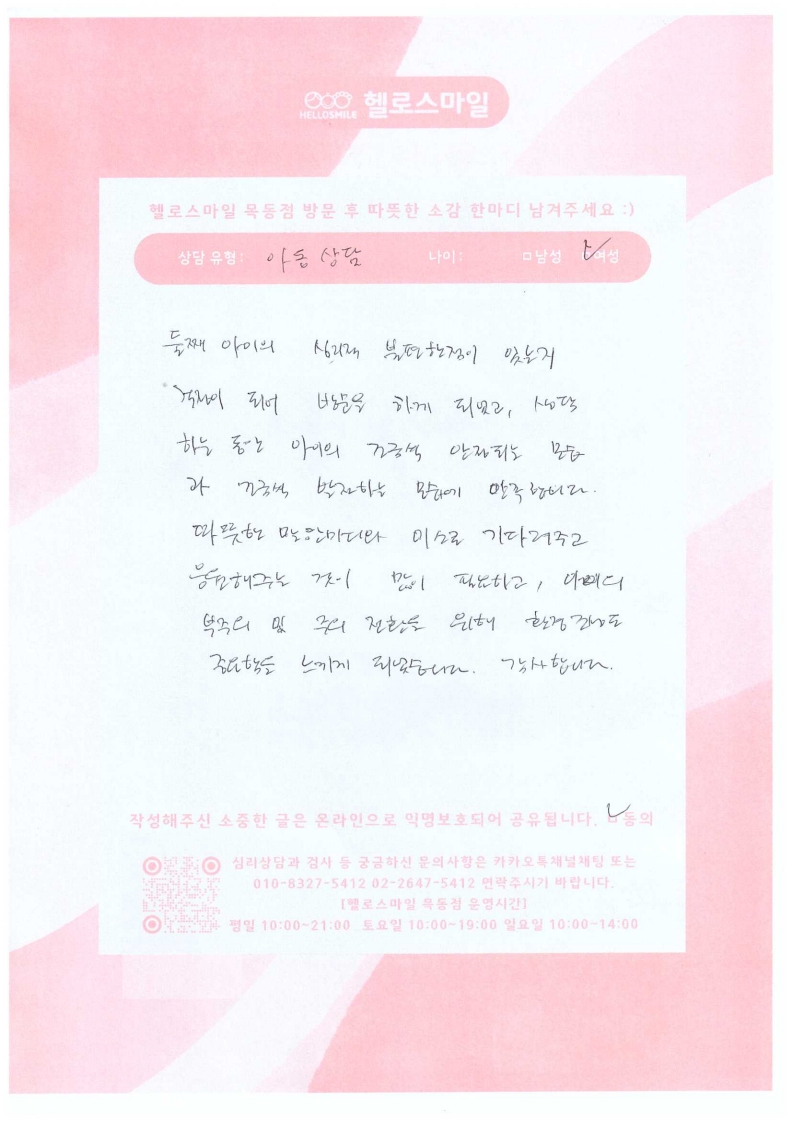 HELLOSMILE 헬로스마일
헬로스마일 목동점 방문 후 따뜻한 소감 한마디 남겨주세요 :)
상담 유형: 아동 상담 나이: □남성 ✓여성
둘째 아이의 심리적 불편한점이 있는지
걱정이 되어 방문을 하게 되었고, 상담
하는 동안 아이의 조금씩 안정되는 모습
과 조금씩 발전하는 모습에 만족합니다.
따뜻한 말한마디와 미소로 기다려주고
응원해주는 것이 많이 필요하고,
부주의 및 주의 전환을 위해
중요함을 느끼게 되었습니다. 감사합니다.
작성해주신 소중한 글은 온라인으로 익명보호되어 공유됩니다. ☑동의
심리상담과 검사 등 궁금하신 문의사항은 카카오톡채널채팅 또는
010-8327-5412 02-2647-5412 연락주시기 바랍니다.
[헬로스마일 목동점 운영시간]
평일 10:00~21:00 토요일 10:00~19:00 일요일 10:00~14:00